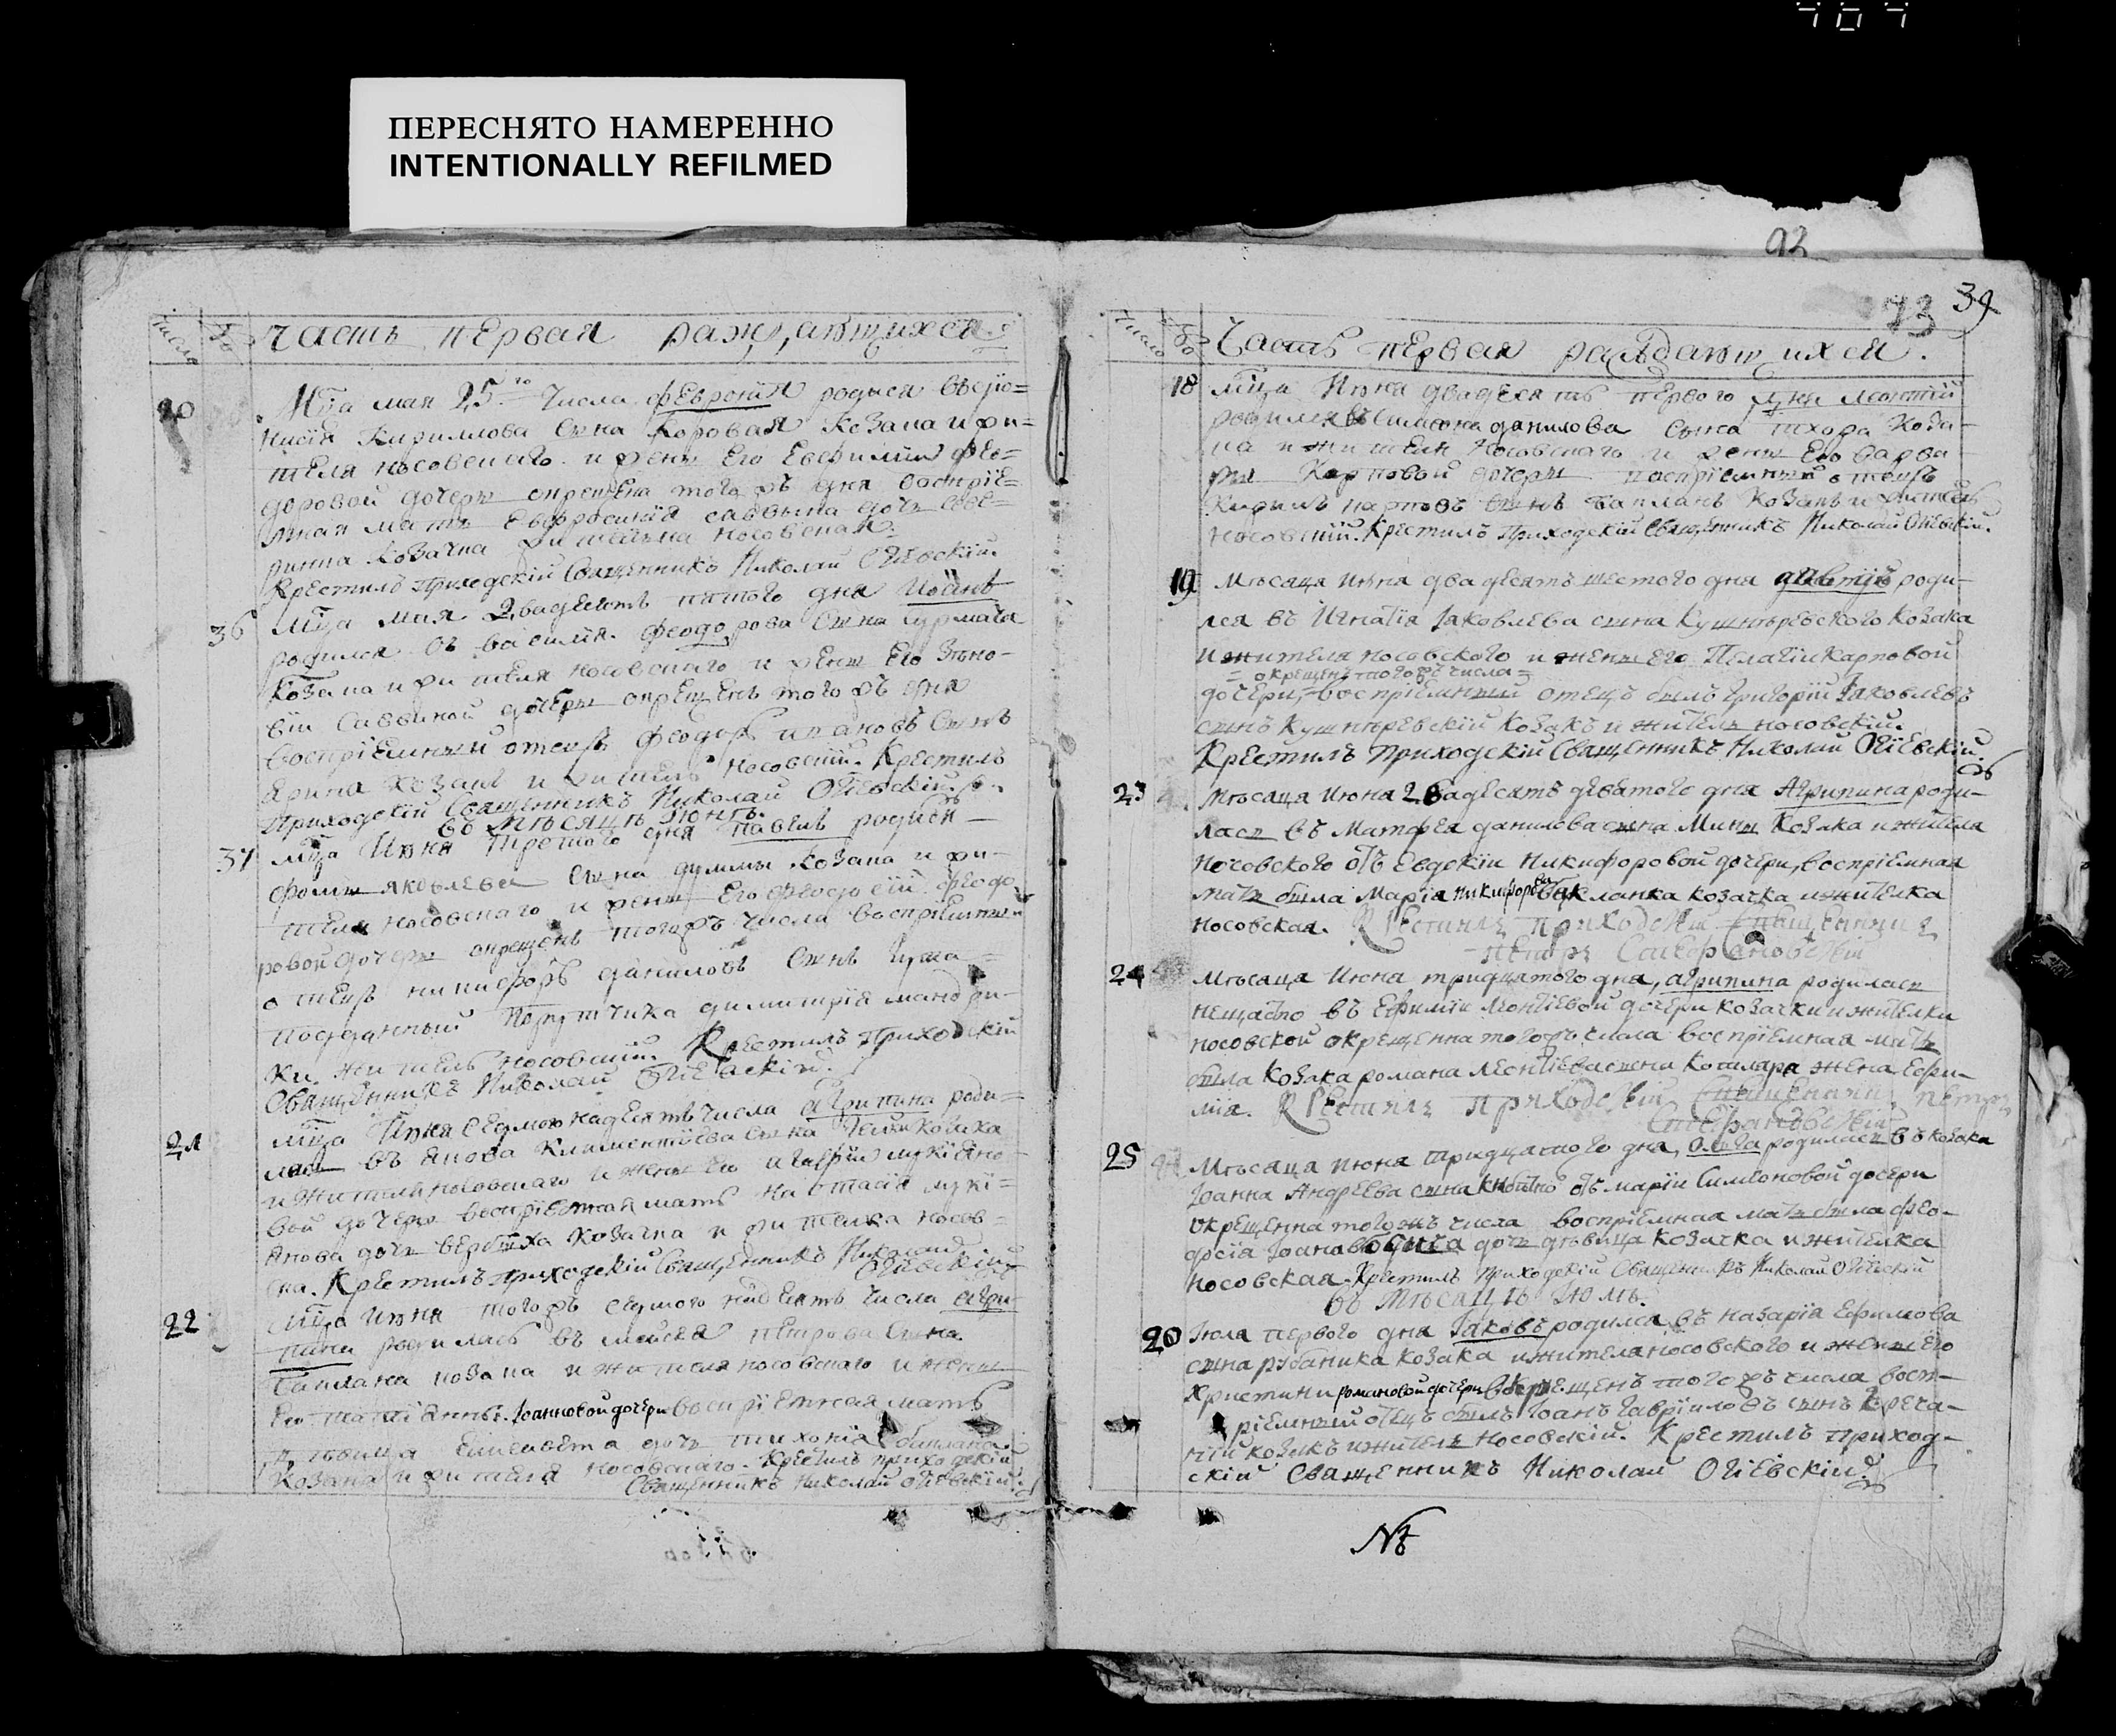 ПЕРЕСНЯТО НАМЕРЕННО
INTENTIONALLY REFILMED
Число
часть первая раждающихся
20
Мца мая 25го Числа Феврониа родися
Кирилова сна Коровая козака и жи=
теля носовского и жены его Евфимии Фео=
доровой дочеры крещена того жъ дня воспріе=
мная мать Евфросинія Саввина дочь
козачка жителка носовская
Крестилъ Приходскій Священникъ Николай Огіевскій
36
Мца мая Двадесять пятого дня Иоанъ
родился въ Василія Феодорова сна
Козака и жителя носовского и жены его Зѣно-
віи Саввиной дочеры окрещенъ того жъ дня
воспріемный отецъ Феодоръ Ивановъ снъ
Ярина козакъ и житель носовскій. Крестилъ
Приходскій Священникъ Николай Огіевскій
въ Мѣсяцѣ Іюнѣ.
37
Мца Июня Третого дня Павелъ родися
Фомы Яковлева сна думмы козака и жи-
теля носовского и жены его Феодосіи Феодо
ровой дочеры окрещенъ тогожъ числа воспріемный
отецъ никифоръ даниловъ снъ
подданный Порутчика димитрія
ки. житель носовскій. Крестилъ Приходскій
Священникъ Николай Огіевскій.
21
Мца Іюня седмогонадесять числа Агрипина роди=
лась въ Якова Климентіева сна козака
и жителя носовского и жены его Агафіи лукіяно-
вой дочеры воспріемная мать Настасія лукі=
янова дочь вербиха козачка и жителка носов=
ская. Крестилъ приходскій Священникъ Николай
Огіевскій
22
Мца Июня тогожъ седмогонадесять числа Агри-
пина родилась въ Мойсея петрова сна
баклана козака и жителя носовского и жены
его татіянны Іоанновой дочери воспріемная мать
дѣвица Елисавета дочь тихонія баклана
козака и жителя носовского. Крестилъ приходскій
Священникъ Николай Огіевскій
92
73 39
Число
Часть первая раждающихся.
18
Мца Июня двадесять первого дня Леонтій
родился въ Симеона данилова сына тхора коза-
ка и жителя Носовского и жены его Варва
ры Карповой дочеры воспріемный отецъ
Кирилъ карповъ снъ бакланъ козакъ и житель
носовскій. Крестилъ Приходскій Священникъ Николай Огіевскій.
19
Мѣсяца Июня двадесять шестого дня роди-
лся въ Игнатія Іаковлева сына Кушнѣревского козака
и жителя носовского и жены его Пелагіи Карповой
= окрещенъ тогожъ числа =
дочери, воспріемный отецъ былъ Григорій Іаковлевъ
сынъ Кушнѣревскій козакъ и житель носовскій.
Крестилъ Приходскій Священникъ Николай Огіевскій
23
Мѣсяца Июня Двадесять девятого дня Агрипина роди-
лась въ Матфея данилова сына Мины козака и жителя
носовского отъ Евдокіи Никифоровой дочери, воспріемная
мать была Марія Никифорова бакланка козачка и жителка
носовская. Крестилъ Приходскій Священникъ
Петръ Стефановскій
24
Мѣсяца Июня тридцятого дня, Агрипина родилась
нещастно въ Ефиміи Леонтіевой дочери козачки и жителки
носовской окрещенна тогожъ числа воспріемная мать
была козака романа Леонтіева сына Котляра жена Ефи-
мія. Крестилъ Приходскій Священникъ Петръ
Стефановскій
25
Мѣсяца июня тридцятого дня, Ольга родилась въ козака
Іоанна Андреева сына отъ маріи Симеоновой дочери
окрещенна тогожъ числа воспріемная мать была Фео-
досія Іоаннова дочь дѣвица козачка и жителка
носовская. Крестилъ Приходскій Священникъ Николай Огіевскій
въ Мѣсяцѣ Іюлѣ.
20
Іюля первого дня Іаковъ родился въ Назарія Ефимова
сына рыбаника козака и жителя носовского и жены его
Христины романовой дочеры окрещенъ тогожъ числа восп-
ріемный отецъ былъ Іоанъ Гавріиловъ сынъ
козакъ и житель носовскій. Крестилъ приход-
скій Священникъ Николай Огіевскій.